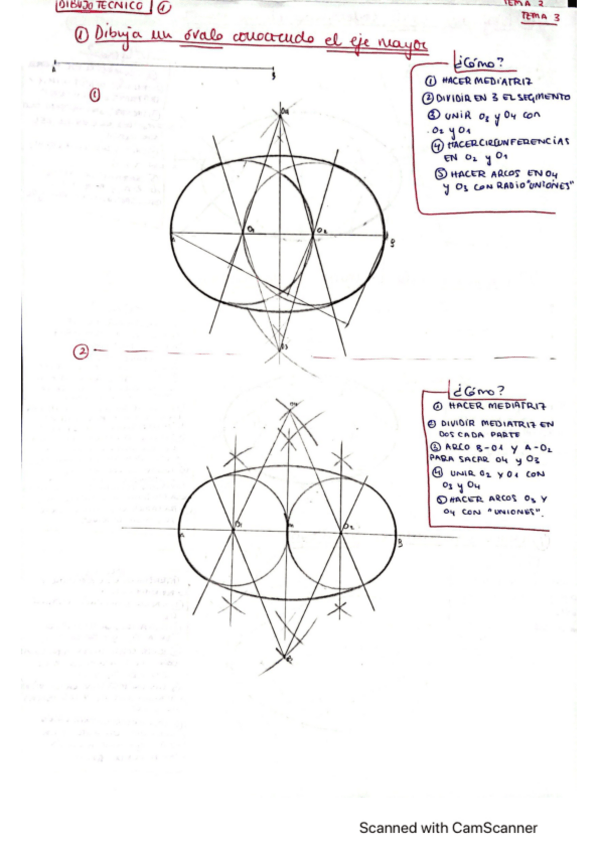 DIBUJO TECNICO 1
TEMA 2
TEMA 3
① Dibuja un óvalo conociendo el eje mayor
A
B
¿Cómo?
① HACER MEDIATRIZ
② DIVIDIR EN 3 EL SEGMENTO
③ UNIR O3 y O4 con
O2 y O1
④ HACER CIRCUNFERENCIAS
EN O2 y O1
⑤ HACER ARCOS EN O4
y O3 CON RADIO "UNIONES"
①
O4
A
O1
O2
B
O3
②
¿Cómo?
① HACER MEDIATRIZ
② DIVIDIR MEDIATRIZ EN
DOS CADA PARTE
③ ARCO B-O1 Y A-O2
PARA SACAR O4 y O3
④ UNIR O2 Y O1 CON
O3 y O4
⑤ HACER ARCOS O3 Y
O4 CON "UNIONES".
O4
A
O1
M
O2
B
Scanned with CamScanner